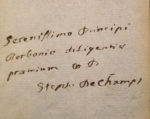 Serenissimo Principi
Borbonio diligentiæ
præmium D D
Steph. DeChamps